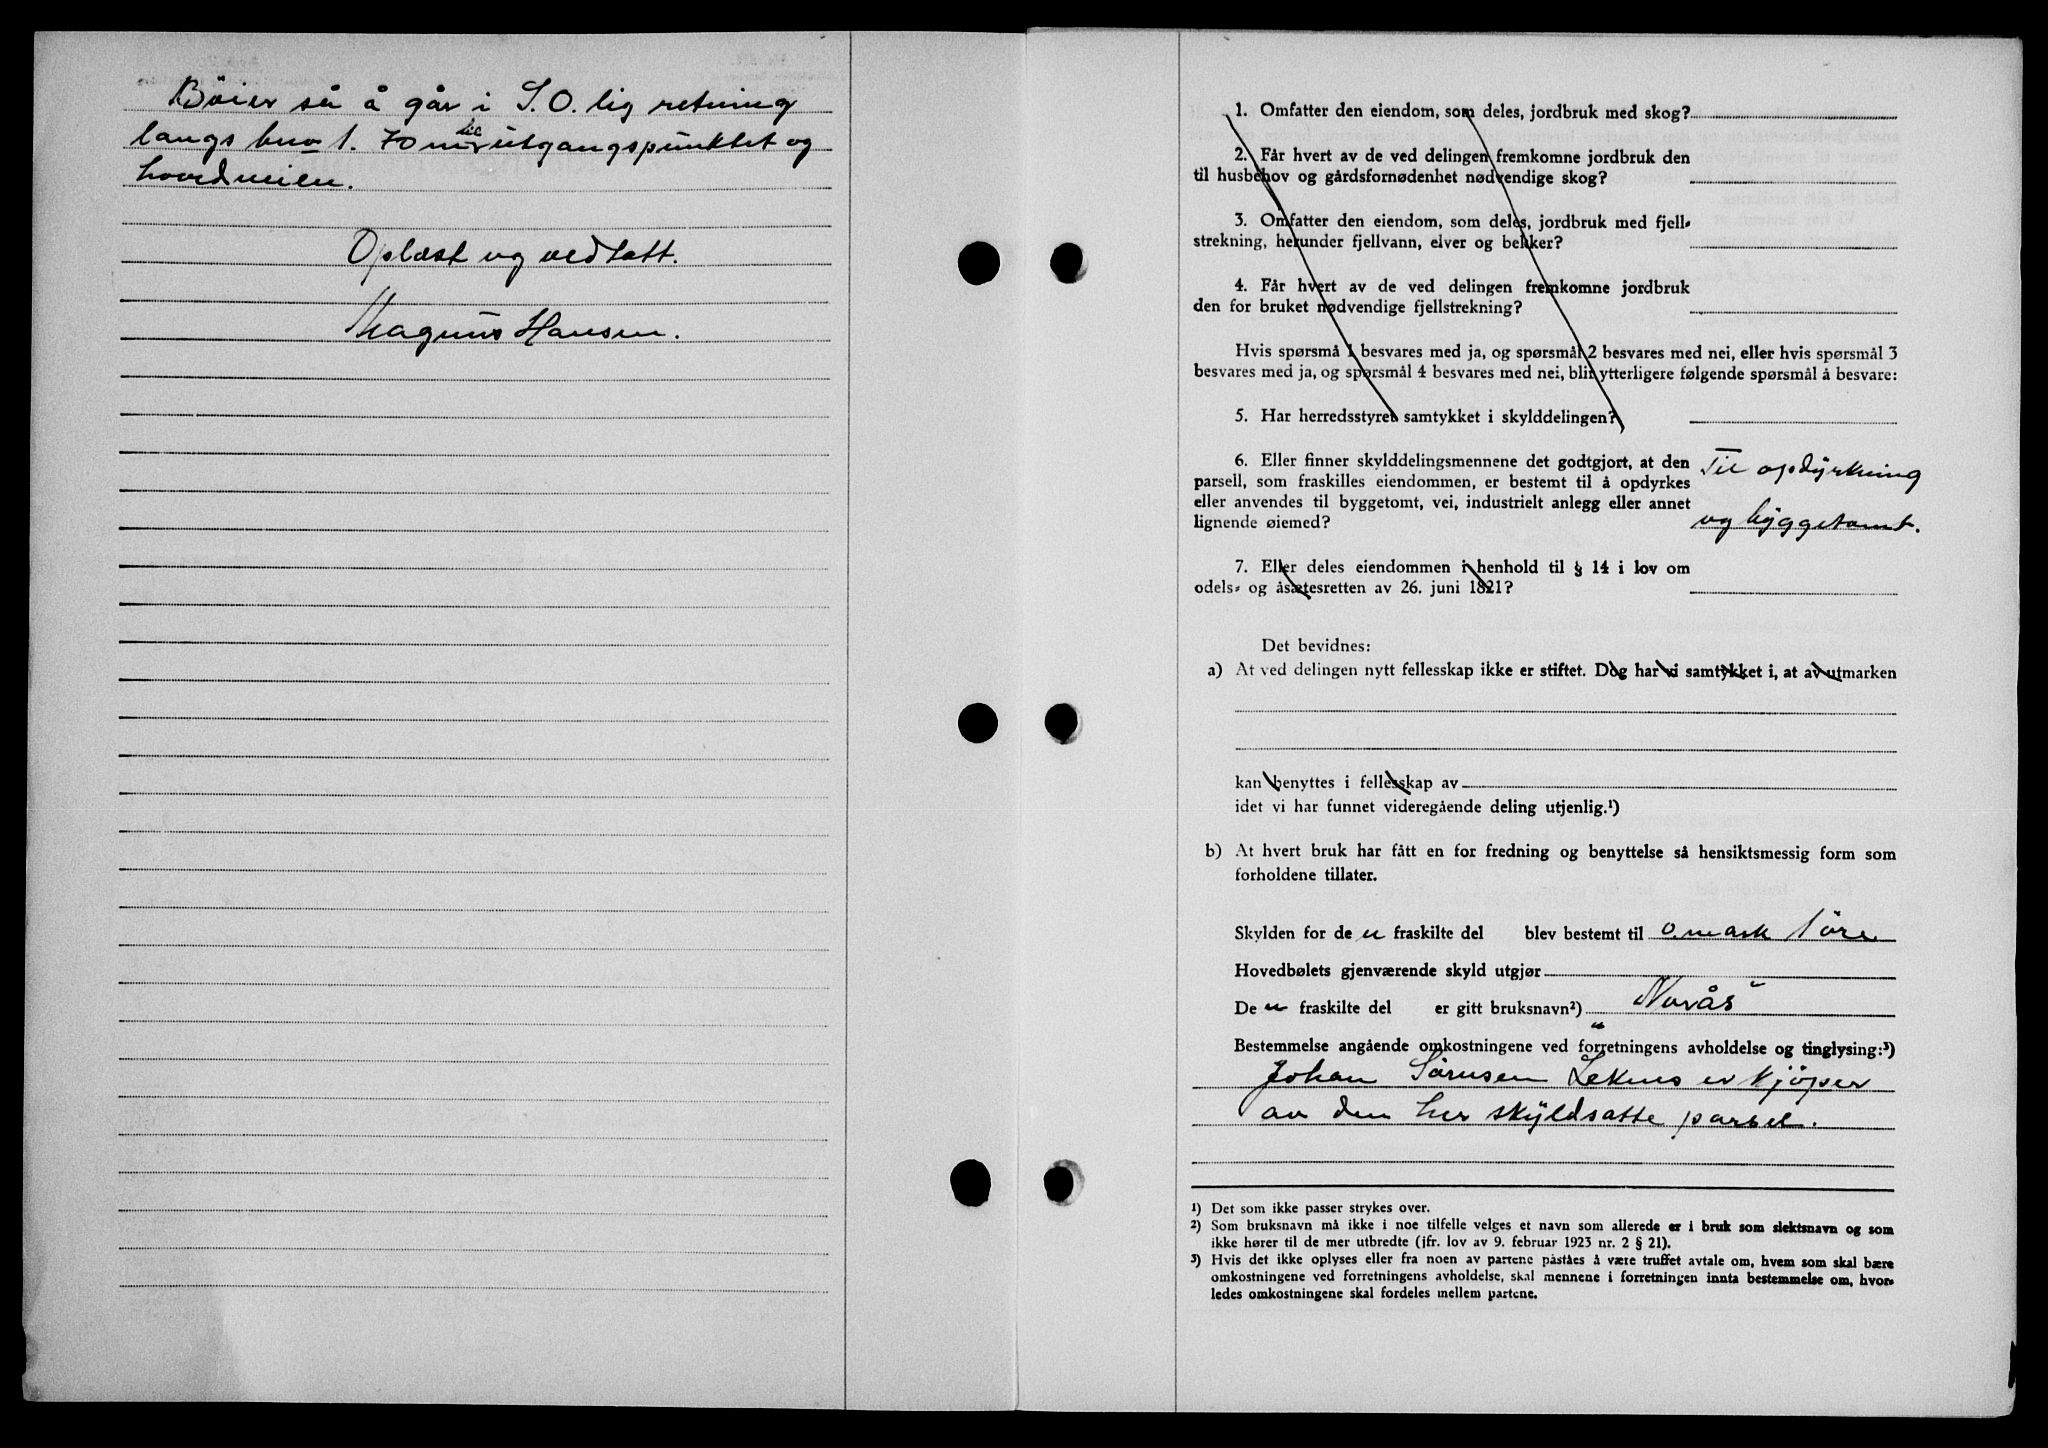 Bøier så å går i S.O. lig retning
langs bno 1. 70 m til utgangspunktet og
hovedveien.
Oplæst og vedtatt.
Magnus Hansen.
1. Omfatter den eiendom, som deles, jordbruk med skog?
2. Får hvert av de ved delingen fremkomne jordbruk den
til husbehov og gårdsfornødenhet nødvendige skog?
3. Omfatter den eiendom, som deles, jordbruk med fjell-
strekning, herunder fjellvann, elver og bekker?
4. Får hvert av de ved delingen fremkomne jordbruk
den for bruket nødvendige fjellstrekning?
Hvis spørsmå 1 besvares med ja, og spørsmål 2 besvares med nei, eller hvis spørsmål 3
besvares med ja, og spørsmål 4 besvares med nei, blir ytterligere følgende spørsmål å besvare:
5. Har herredsstyret samtykket i skylddelingen?
6. Eller finner skylddelingsmennene det godtgjort, at den
parsell, som fraskilles eiendommen, er bestemt til å opdyrkes
eller anvendes til byggetomt, vei, industrielt anlegg eller annet
lignende øiemed?
Til opdyrkning
og byggetomt.
7. Eller deles eiendommen i henhold til § 14 i lov om
odels- og åsætesretten av 26. juni 1821?
Det bevidnes:
a) At ved delingen nytt fellesskap ikke er stiftet. Dog har vi samtykket i, at av utmarken
kan benyttes i fellesskap av
idet vi har funnet videregående deling utjenlig.¹)
b) At hvert bruk har fått en for fredning og benyttelse så hensiktsmessig form som
forholdene tillater.
Skylden for de n fraskilte del blev bestemt til 0 mark 1 øre
Hovedbølets gjenværende skyld utgjør
De n fraskilte del er gitt bruksnavn²) „Norås“
Bestemmelse angående omkostningene ved forretningens avholdelse og tinglysing:³)
Johan Sørensen Leknes er kjøper
av den her skyldsatte parsel.
¹) Det som ikke passer strykes over.
²) Som bruksnavn må ikke i noe tilfelle velges et navn som allerede er i bruk som slektsnavn og som
ikke hører til de mer utbredte (jfr. lov av 9. februar 1923 nr. 2 § 21).
³) Hvis det ikke oplyses eller fra noen av partene påståes å være truffet avtale om, hvem som skal bære
omkostningene ved forretningens avholdelse, skal mennene i forretningen innta bestemmelse om, hvor-
ledes omkostningene skal fordeles mellem partene.